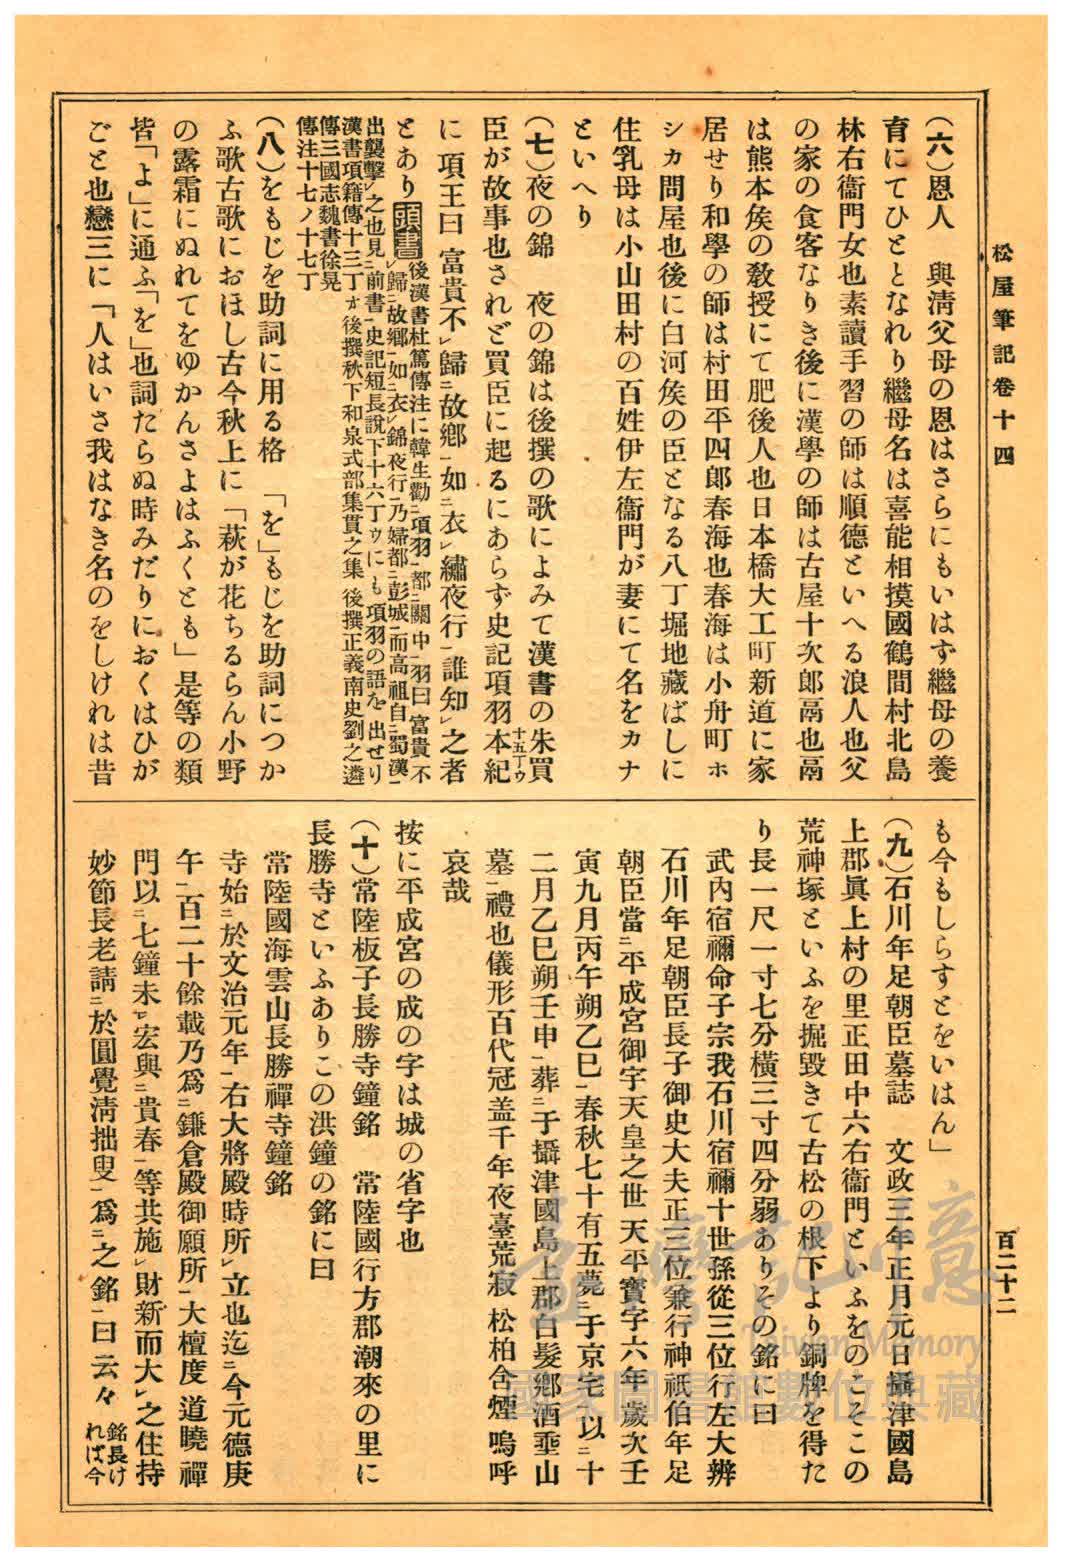 松屋筆記卷十四
百二十二
(六)恩人　與淸父母の恩はさらにもいはず繼母の養
育にてひとゝなれり繼母名は喜能相摸國鶴間村北島
林右衞門女也素讀手習の師は順德といへる浪人也父
の家の食客なりき後に漢學の師は古屋十次郎鬲也鬲
は熊本矦の敎授にて肥後人也日本橋大工町新道に家
居せり和學の師は村田平四郞春海也春海は小舟町ホ
シカ問屋也後に白河矦の臣となる八丁堀地藏ばしに
住乳母は小山田村の百姓伊左衞門が妻にて名をカナ
といへり
(七)夜の錦　夜の錦は後撰の歌によみて漢書の朱買
臣が故事也されど買臣に起るにあらず史記項羽本紀十五丁ウ
に項王曰富貴不レ歸二故鄕一如二衣レ繡夜行一誰知レ之者
とあり頭書後漢書杜篤傳注に韓生勸二項羽一都二關中一羽曰富貴不
レ歸二故鄕一如二衣レ錦夜行一乃婦都二彭城一而高祖自二蜀漢一
出襲擊レ之也見二前書一史記短長說下十六丁ウにも項羽の語を出せり
漢書項籍傳十三丁オ後撰秋下和泉式部集貫之集後撰正義南史劉之遴
傳三國志魏書徐晃
傳注十七ノ十七丁
(八)をもじを助詞に用る格　「を」もじを助詞につか
ふ歌古歌におほし古今秋上に「萩が花ちるらん小野
の露霜にぬれてをゆかんさよはふくとも」是等の類
皆「よ」に通ふ「を」也詞たらぬ時みだりにおくはひが
ごと也戀三に「人はいさ我はなき名のをしけれは昔
も今もしらすとをいはん」
(九)石川年足朝臣墓誌　文政三年正月元日攝津國島
上郡眞上村の里正田中六右衞門といふをのこそこの
荒神塚といふを掘毀きて古松の根下より銅牌を得た
り長一尺一寸七分橫三寸四分弱ありその銘に曰
武內宿禰命子宗我石川宿禰十世孫從三位行左大辨
石川年足朝臣長子御史大夫正三位兼行神祇伯年足
朝臣當二平成宮御宇天皇之世天平寶字六年歲次壬
寅九月丙午朔乙巳一春秋七十有五薨二于京宅一以二十
二月乙巳朔壬申一葬二于攝津國島上郡白髮鄕酒埀山
墓一禮也儀形百代冠盖千年夜臺荒寂松柏含煙嗚呼
哀哉
按に平成宮の成の字は城の省字也
(十)常陸板子長勝寺鐘銘　常陸國行方郡潮來の里に
長勝寺といふありこの洪鐘の銘に曰
常陸國海雲山長勝禪寺鐘銘
寺始二於文治元年一右大將殿時所レ立也迄二今元德庚
午一百二十餘載乃爲二鎌倉殿御願所一大檀度道曉禪
門以二七鐘未一レ宏與二貴春一等共施レ財新而大レ之住持
妙節長老請二於圓覺淸拙叟一爲二之銘一曰云々銘長け
れば今
臺灣記憶
Taiwan Memory
國家圖書館數位典藏